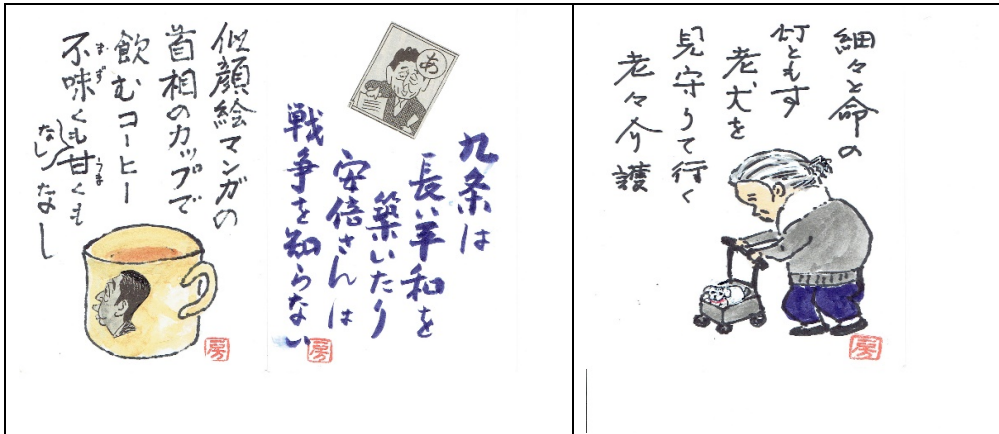 似顔絵マンガの
首相のカップで
飲むコーヒー
不味くもなし甘くもなし
まず
うま
房
あ
九条は
長い平和を
築いたり
安倍さんは
戦争を知らない
房
細々と命の
灯ともす
老犬を
見守りて行く
老々介護
房